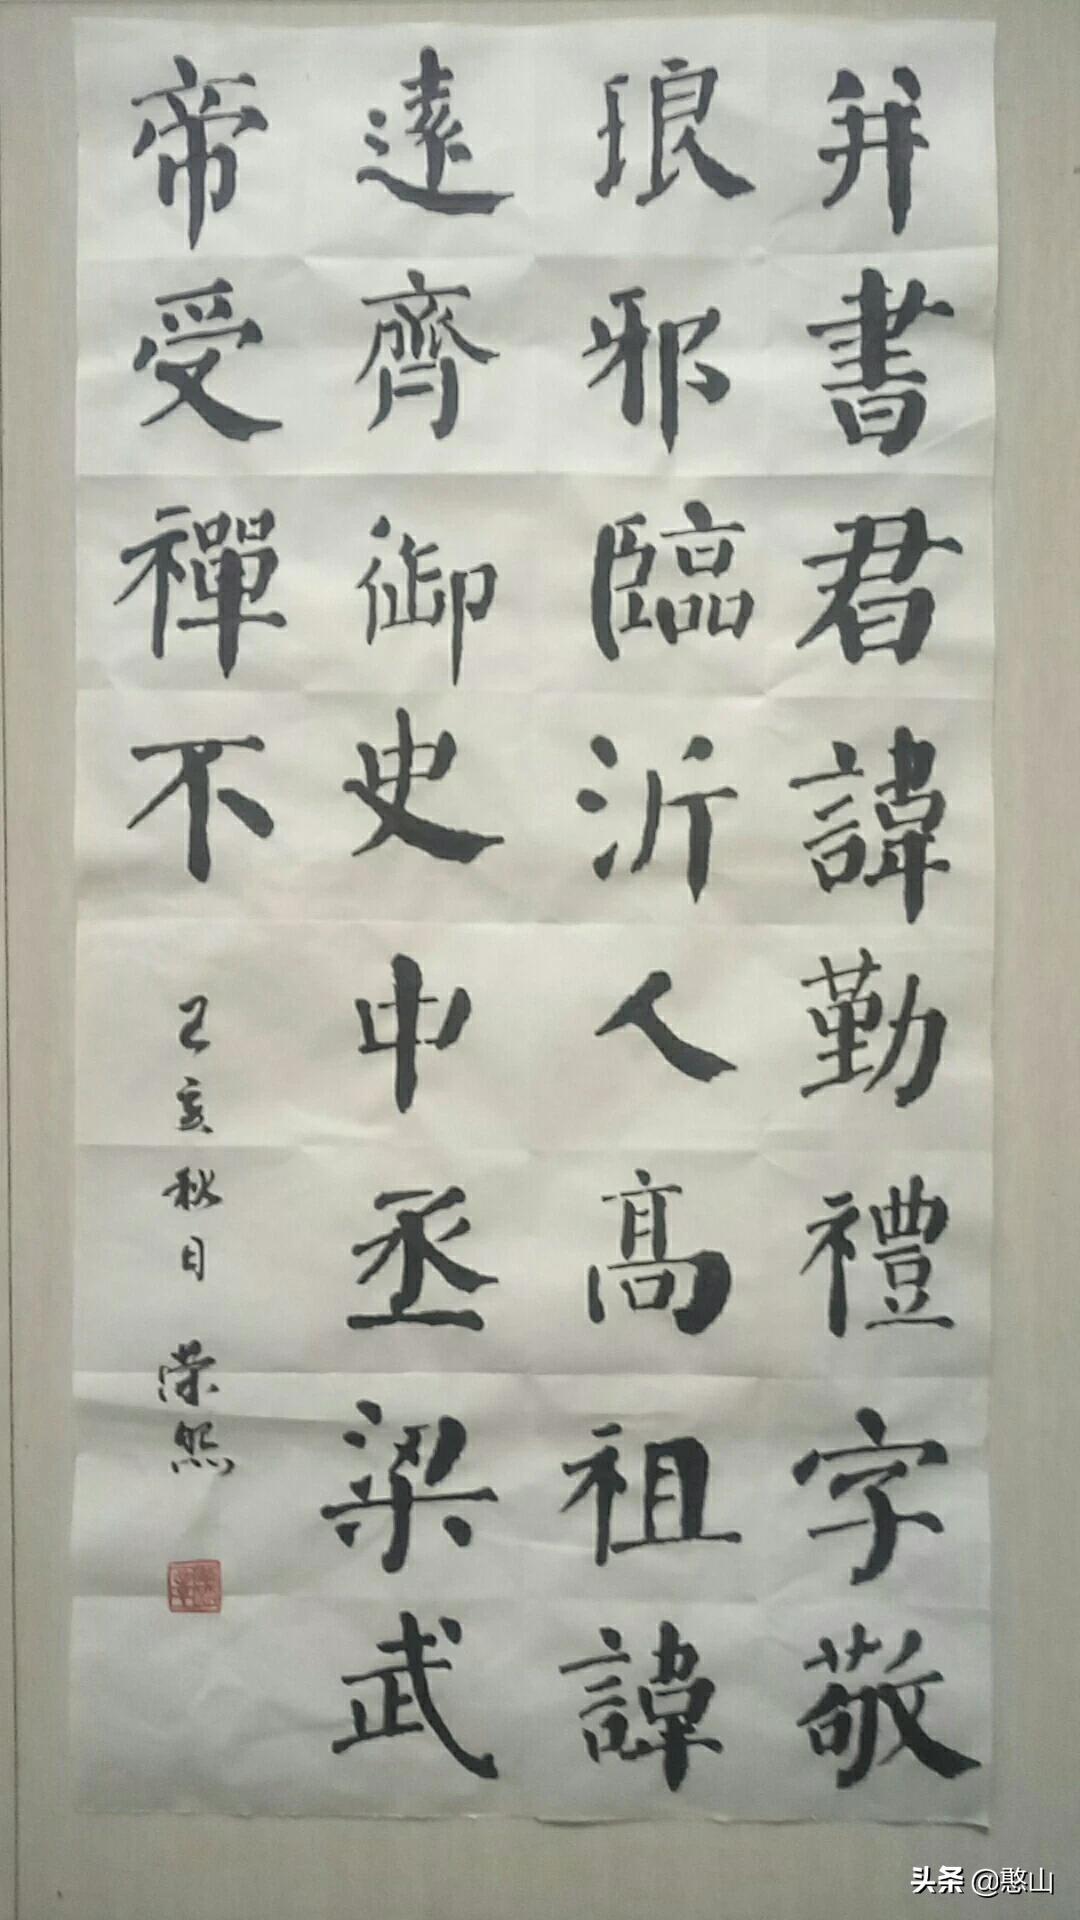 并書君諱勤禮字敬
琅邪臨沂人高祖諱
遠齊御史中丞梁武
帝受禪不
己亥秋日 荣然
头条 @憨山